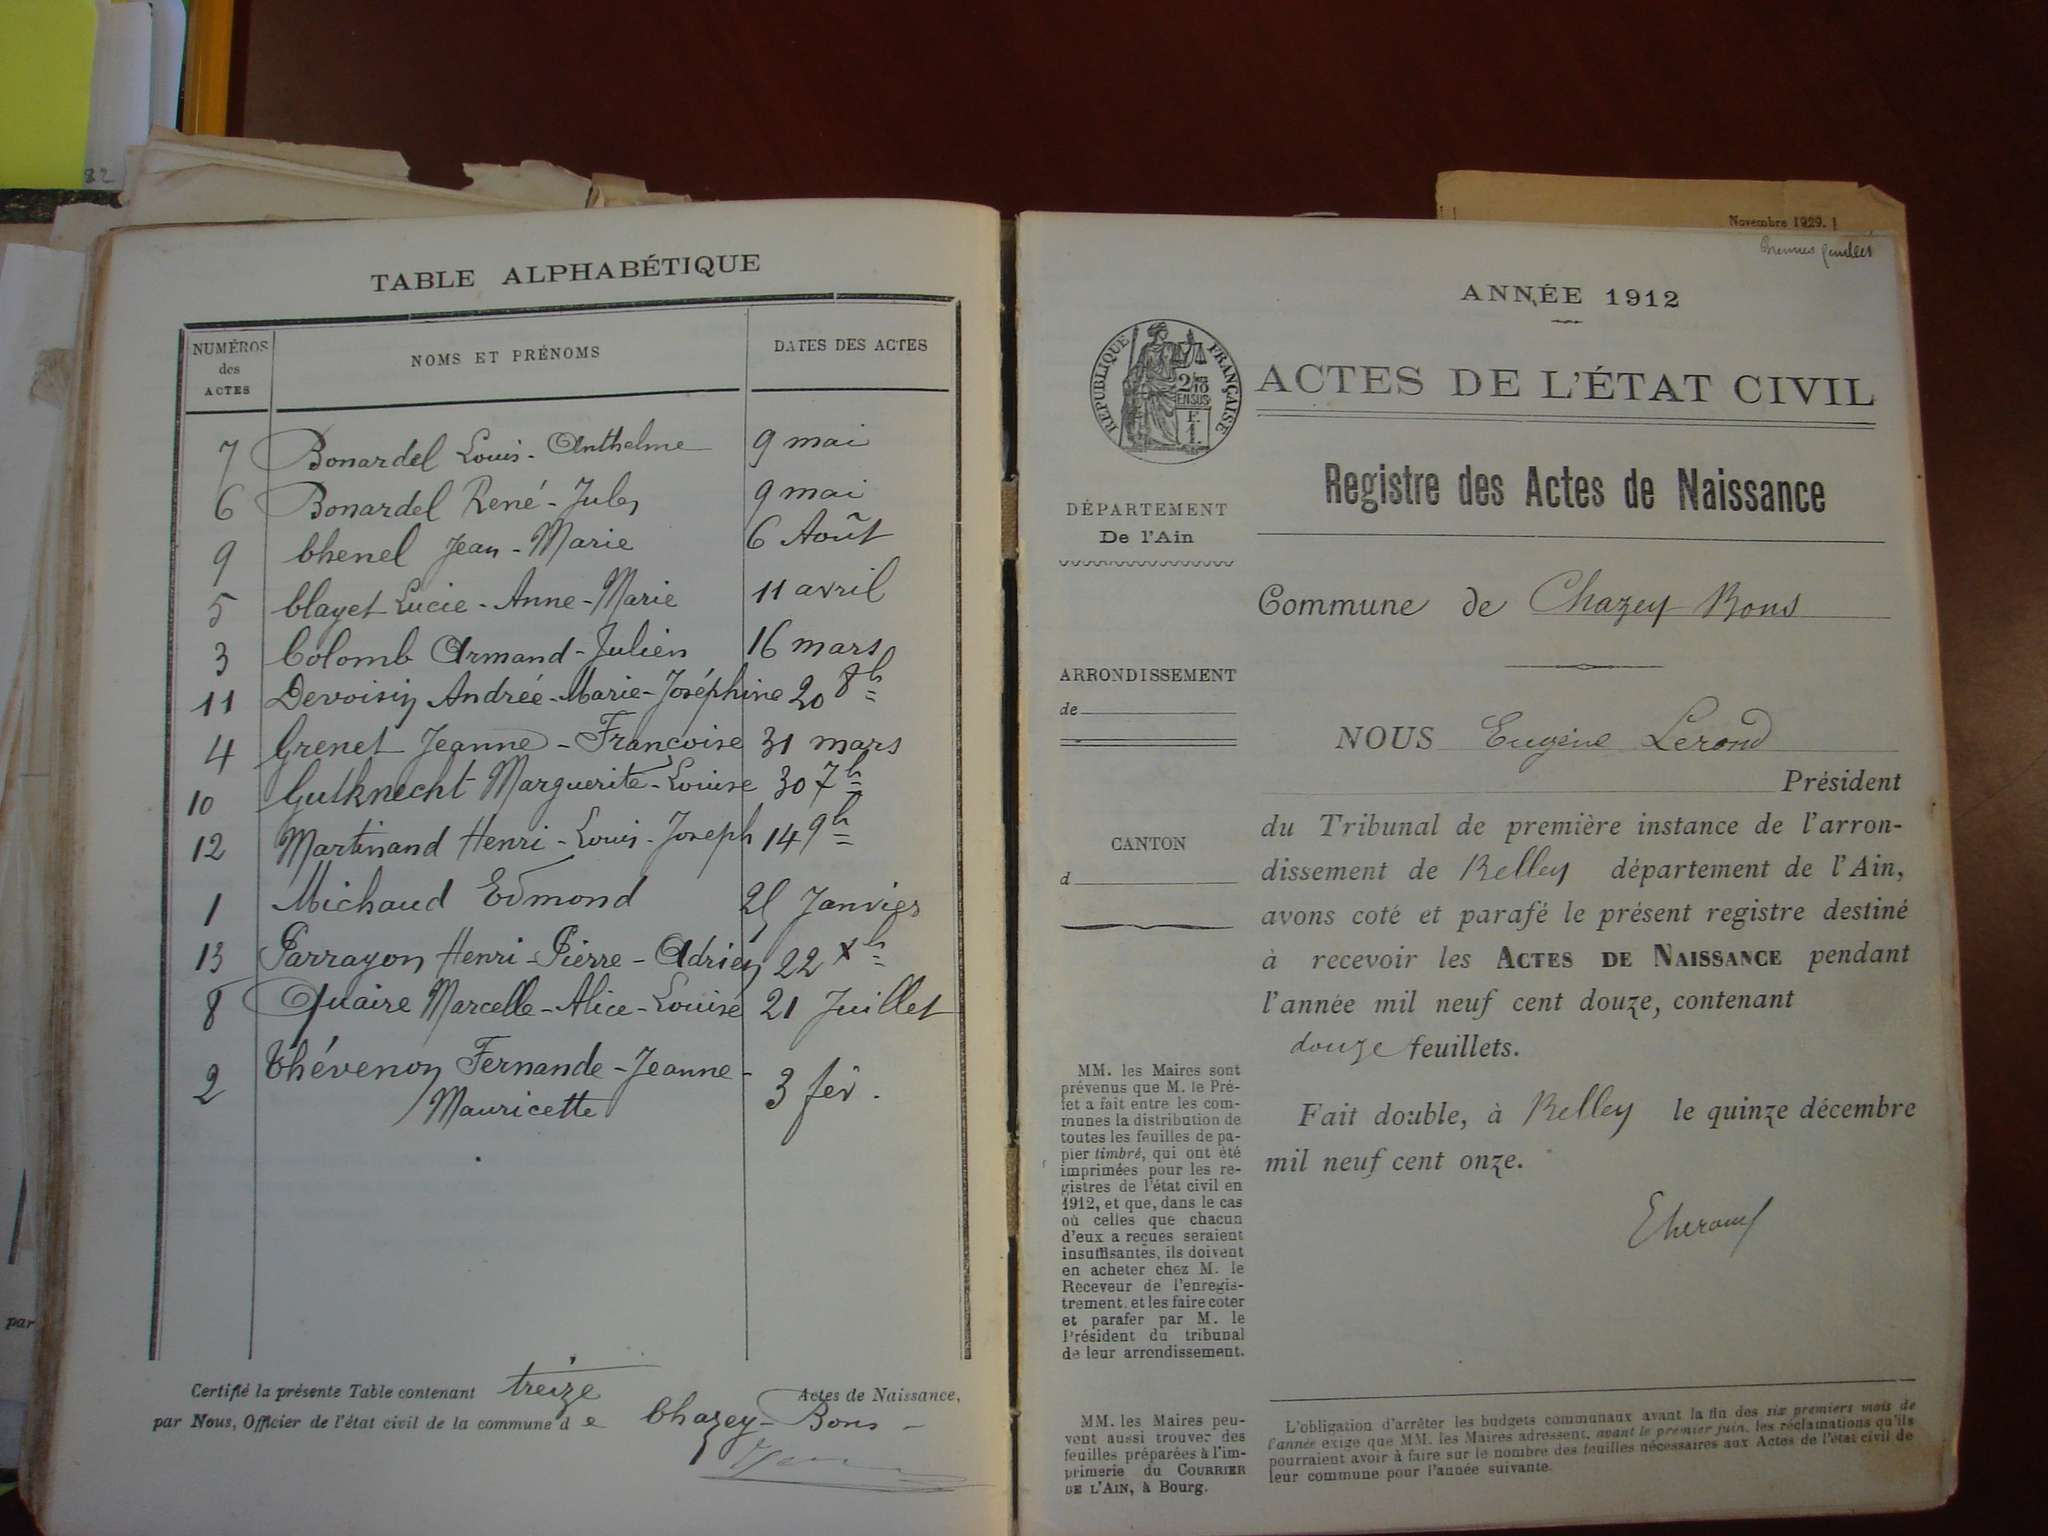 82
TABLE ALPHABÉTIQUE
NUMÉROS des ACTES
NOMS ET PRÉNOMS
DATES DES ACTES
7 Bonardel Louis-Anthelme 9 mai
6 Bonardel René-Jules 9 mai
9 Chenel Jean-Marie 6 Août
5 Clayet Lucie-Anne-Marie 11 avril
3 Colomb Armand-Julien 16 mars
11 Devoisin Andrée-Marie-Joséphine 20 8b
4 Grenet Jeanne-Françoise 31 mars
10 Gutknecht Marguerite-Louise 30 7b
12 Martinand Henri-Louis-Joseph 14 9b
1 Michaud Edmond 25 Janvier
13 Parrayon Henri-Pierre-Adrien 22 Xb
8 Quaire Marcelle-Alice-Louise 21 Juillet
2 Thévenon Fernande-Jeanne-
Mauricette 3 fév.
Certifié la présente Table contenant treize Actes de Naissance,
par Nous, Officier de l'état civil de la commune de Chazey-Bons
par
Novembre 1929.
ANNÉE 1912
RÉPUBLIQUE FRANÇAISE
2/10
EN SUS
F.
1.
ACTES DE L'ÉTAT CIVIL
Registre des Actes de Naissance
DÉPARTEMENT
De l'Ain
Commune de Chazey Bons
ARRONDISSEMENT
de
CANTON
d
NOUS Eugène Lerond
Président
du Tribunal de première instance de l'arron-
dissement de Belley département de l'Ain,
avons coté et parafé le présent registre destiné
à recevoir les ACTES DE NAISSANCE pendant
l'année mil neuf cent douze, contenant
douze feuillets.
Fait double, à Belley le quinze décembre
mil neuf cent onze.
MM. les Maires sont
prévenus que M. le Pré-
fet a fait entre les com-
munes la distribution de
toutes les feuilles de pa-
pier timbré, qui ont été
imprimées pour les re-
gistres de l'état civil en
1912, et que, dans le cas
où celles que chacun
d'eux a reçues seraient
insuffisantes, ils doivent
en acheter chez M. le
Receveur de l'enregis-
trement. et les faire coter
et parafer par M. le
Président du tribunal
de leur arrondissement.
MM. les Maires peu-
vent aussi trouver des
feuilles préparées à l'im-
primerie du COURRIER
DE L'AIN, à Bourg.
L'obligation d'arrêter les budgets communaux avant la fin des six premiers mois de
l'année exige que MM. les Maires adressent, avant le premier juin, les réclamations qu'ils
pourraient avoir à faire sur le nombre des feuilles nécessaires aux Actes de l'état civil de
leur commune pour l'année suivante.